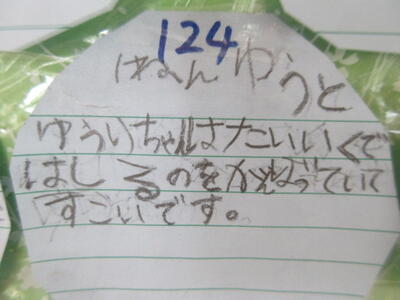 124
はん ゆうと
ゆういちゃんはたいいくで
はしるのをがんばっていて
すごいです。